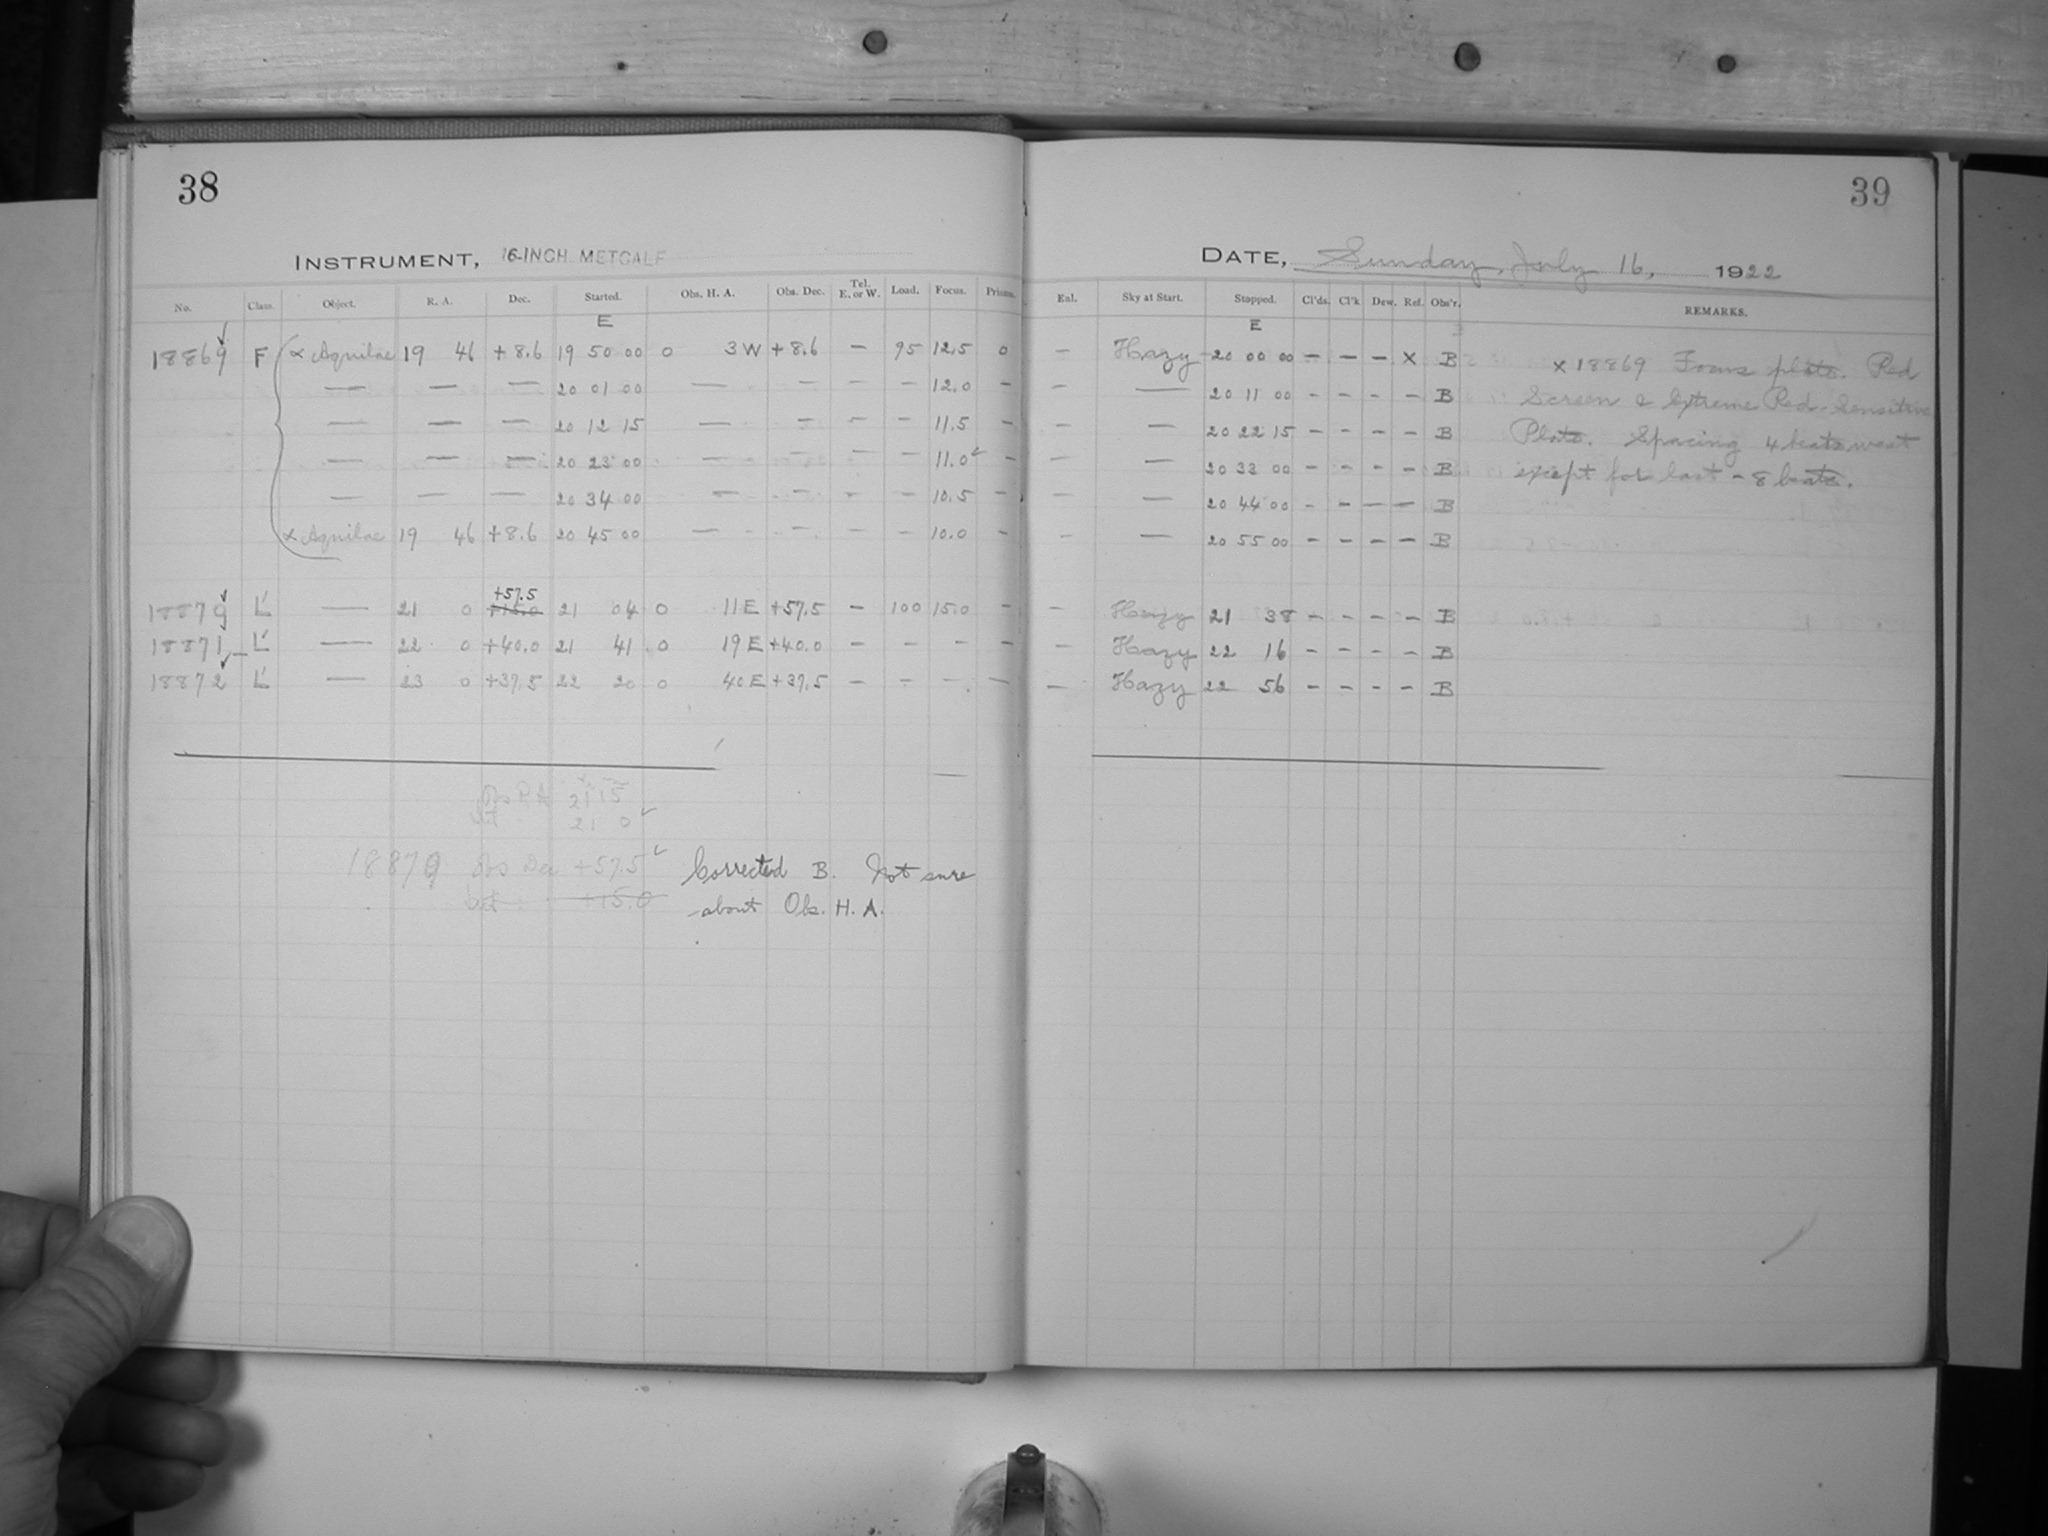 38
INSTRUMENT, 16-INCH METCALF
No. Class. Object. R. A. Dec. Started. Obs. H. A. Obs. Dec. Tel. E. or W. Load. Focus. Prisms.
E
18869 F α Aquilae 19 46 +8.6 19 50 00 0 3 W +8.6 — 95 12.5 0
— — — 20 01 00 — — — — 12.0 —
— — — 20 12 15 — — — — 11.5 —
— — — 20 23 00 — — — — 11.0 —
— — — 20 34 00 — — — — 10.5 —
α Aquilae 19 46 +8.6 20 45 00 — — — — 10.0 —
+57.5
18870 L' — 21 0 +15.0 21 04 0 11 E +57.5 — 100 15.0 —
18871 L' — 22 0 +40.0 21 41 0 19 E +40.0 — — — —
18872 L' — 23 0 +37.5 22 20 0 40 E +37.5 — — — —
Obs R A 21 15
21 0
18870 Obs Dec +57.5 Corrected B. Not sure
+15.0 about Obs. H. A.
39
DATE, Sunday, July 16, 1922
Eal. Sky at Start. Stopped. Cl'ds. Cl'k Dew. Ref. Obs'r. REMARKS.
E
— Hazy 20 00 00 — — — x B x 18869 Focus plate. Red
— — 20 11 00 — — — — B Screen & Extreme Red-Sensitive
— — 20 22 15 — — — — B Plate. Spacing 4 beats west
— — 20 33 00 — — — — B except for last – 8 beats.
— — 20 44 00 — — — — B
— — 20 55 00 — — — — B
— Hazy 21 38 — — — — B
— Hazy 22 16 — — — — B
— Hazy 22 56 — — — — B